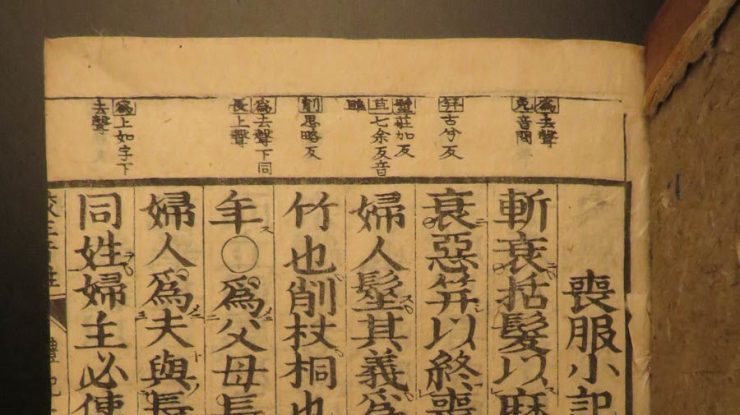 喪服小記
斬衰括髮以麻
衰惡筓以終喪
婦人髽其義爲
竹也削杖桐也
年○爲父母長
婦人爲夫與長
同姓婦主必使
爲去聲
免音問
筓古兮反
髽莊加反
苴七余反音
雎
削思略反
爲去聲下同
長上聲
爲上如字下
去聲